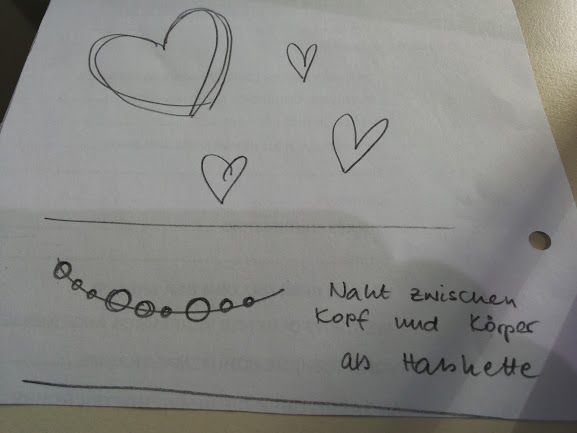 Naht zwischen
Kopf und Körper
als Halskette